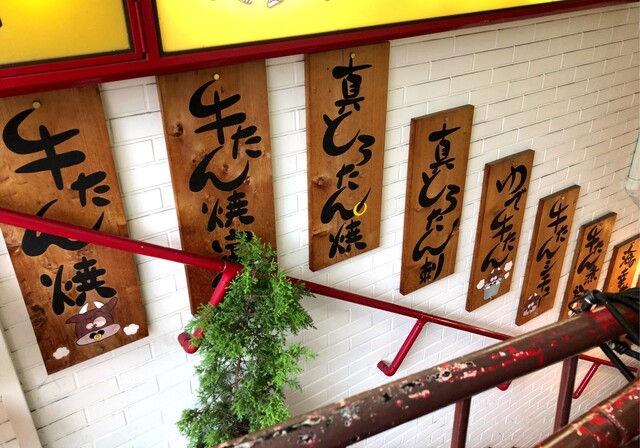 牛たん焼
牛たん焼
真とろたん焼
真とろたん刺
ゆで牛たん
牛たんシチュ
牛たん